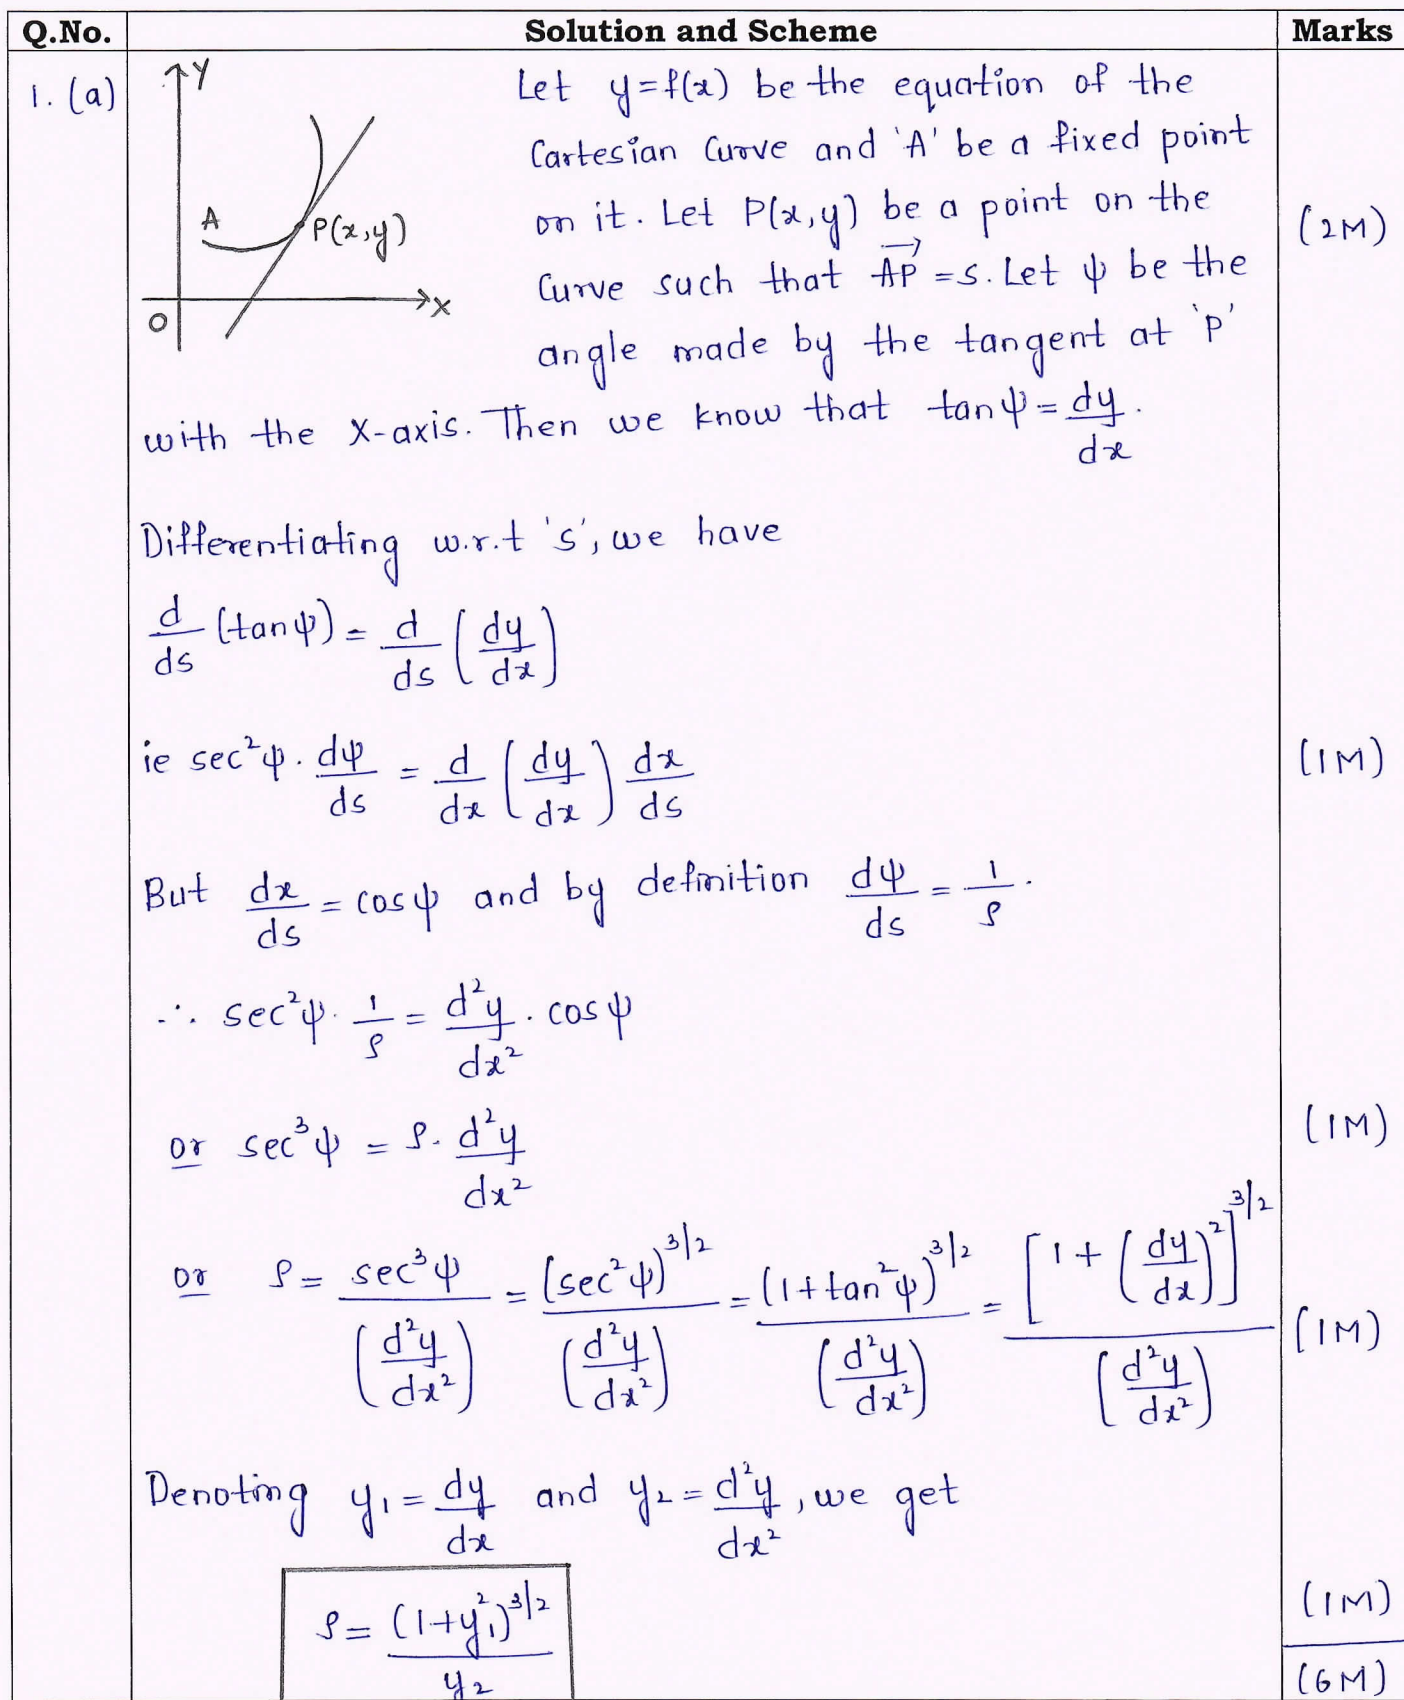 Q.No. Solution and Scheme Marks
1. (a)
Y
A
P(x,y)
O
X
Let y=f(x) be the equation of the
Cartesian Curve and 'A' be a fixed point
on it. Let P(x,y) be a point on the
Curve such that \overrightarrow{AP} = s. Let ψ be the
angle made by the tangent at 'P'
(2M)
with the X-axis. Then we know that tanψ = dy/dx.
Differentiating w.r.t 's', we have
d/ds (tanψ) = d/ds (dy/dx)
ie sec²ψ. dψ/ds = d/dx (dy/dx) dx/ds (1M)
But dx/ds = cosψ and by definition dψ/ds = 1/ρ.
∴ sec²ψ. 1/ρ = d²y/dx² . cosψ
or sec³ψ = ρ. d²y/dx² (1M)
or ρ = sec³ψ/(d²y/dx²) = (sec²ψ)^3/2/(d²y/dx²) = (1+tan²ψ)^3/2/(d²y/dx²) = [1+(dy/dx)²]^3/2/(d²y/dx²) (1M)
Denoting y₁ = dy/dx and y₂ = d²y/dx², we get
ρ = (1+y₁²)^3/2/y₂ (1M)
(6M)